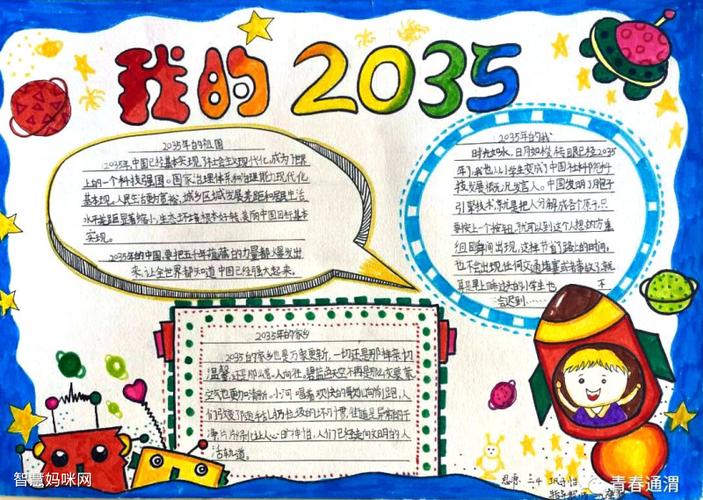 我的2035
2035年的祖国
2035年，中国已经基本实现了社会主义现代化，成为了世
界上的一个科技强国。国家治理体系和治理能力现代化
基本现，人民生活更为富裕，城乡区域发展差距和居民生活
水平差距显著缩小，生态环境根本好转，美丽中国目标基本
实现。
2035年的中国，要把五千年蕴藏的力量都爆发出
来，让全世界都知道中国已经强大起来。
2035年的我
时光如水，日月如梭，转眼已经2035
年，我也从小学生变成了中国
技发展概况发言人。中国发明了
引擎技术，就是把人分解成各个原子，只
要按上一个按钮，就可以到这个人想去的方重
组回瞬间出现，这样节们路上的时间，
也不会出现任何交通堵塞或者事故，
上学的小学生也不
会迟到……
2035年的家乡
2035的家乡也是万家更新，一切还是那样亲切
温馨，还是那么惹人向往。碧蓝
空气也更加清新。小河唱着欢快的歌
们
人们已经走向文明的人
活轨道。
智慧妈咪网
青春通渭